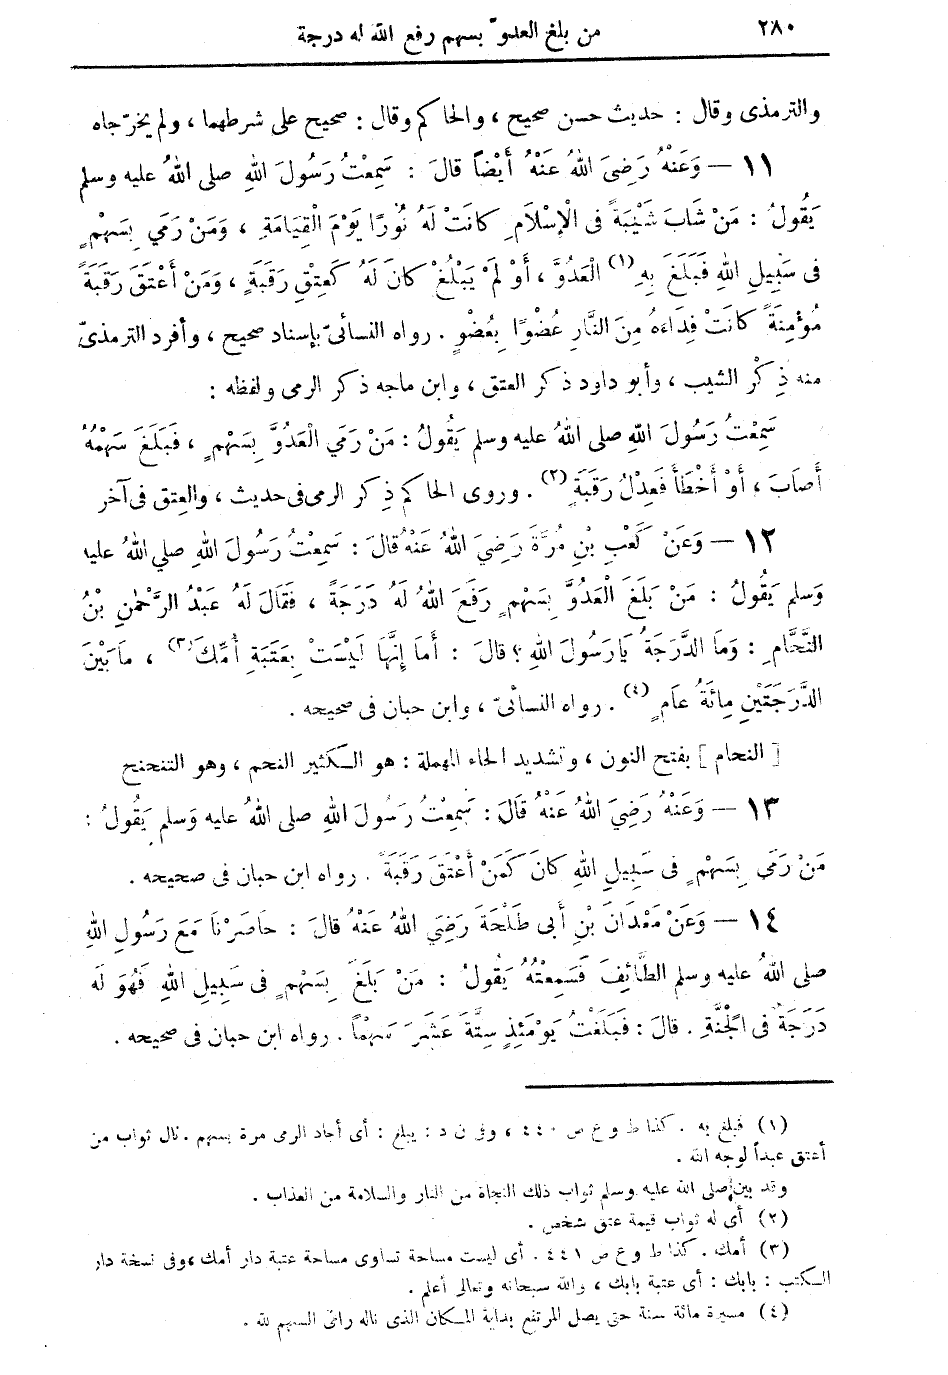 ٢٨٠ من بلغ العدوّ بسهم رفع الله له درجة
والترمذى وقال : حديث حسن صحيح ، والحاكم وقال : صحيح على شرطهما ، ولم يخرّجاه
١١ — وَعَنْهُ رَضِىَ اللهُ عَنْهُ أَيْضاً قالَ : سَمِعْتُ رَسُولَ اللهِ صلى اللهُ عليه وسلم
يَقُولُ : مَنْ شَابَ شَيْبَةً فى الْإِسْلَامِ كانَتْ لَهُ نُورًا يَوْمَ الْقِيَامَةِ ، وَمَنْ رَمَي بِسَهْمٍ
فى سَبِيلِ اللهِ فَبَلَغَ بِهِ (١) الْعَدُوَّ ، أَوْ لَمْ يَبْلُغْ كانَ لَهُ كَعِتْقِ رَقَبَةٍ ، وَمَنْ أَعْتَقَ رَقَبَةً
مُؤْمِنَةً كانَتْ فِدَاءَهُ مِنَ النَّارِ عُضْوًا بِعُضْوٍ . رواه النسائىّ بإسناد صحيح ، وأفرد الترمذىّ
منه ذِكْر الشيب ، وأبو داود ذكر العتق ، وابن ماجه ذكر الرمى ولفظه :
سَمِعْتُ رَسُولَ اللهِ صلى اللهُ عليه وسلم يَقُولُ : مَنْ رَمَي الْعَدُوَّ بِسَهْمٍ ، فَبَلَغَ سَهْمُهُ
أَصَابَ ، أَوْ أَخْطَأَ فَعِدْلُ رَقَبَةٍ (٢) . وروى الحاكم ذِكر الرمى فى حديث ، والعِتق فى آخر
١٢ — وَعَنْ كَعْبِ بْنِ مُرَّةَ رَضِيَ اللهُ عَنْهُ قالَ : سَمِعْتُ رَسُولَ اللهِ صلي اللهُ عليه
وَسلم يَقُولُ : مَنْ بَلَغَ الْعَدُوَّ بِسَهْمٍ رَفَعَ اللهُ لَهُ دَرَجَةً ، فَقَالَ لَهُ عَبْدُ الرَّحْمٰنِ بْنُ
النَّحَّامِ : وَمَا الدَّرَجَةُ يَا رَسُولَ اللهِ ؟ قالَ : أَمَا إِنَّهَا لَيْسَتْ بِعَتَبَةِ أُمِّكَ (٣) ، مَا بَيْنَ
الدَّرَجَتَيْنِ مِائَةُ عَامٍ (٤) . رواه النسائىّ ، وابن حبان فى صحيحه .
[ النحام ] بفتح النون ، وتشديد الحاء المهملة : هو الكثير النحم ، وهو التنحنح
١٣ — وَعَنْهُ رَضِيَ اللهُ عَنْهُ قَالَ : سَمِعْتُ رَسُولَ اللهِ صلى اللهُ عليه وَسلم يَقُولُ :
مَنْ رَمَي بِسَهْمٍ فى سَبِيلِ اللهِ كانَ كَمَنْ أَعْتَقَ رَقَبَةً . رواه ابن حبان فى صحيحه .
١٤ — وَعَنْ مَعْدَانَ بْنِ أَبى طَلْحَةَ رَضِيَ اللهُ عَنْهُ قالَ : حَاصَرْنَا مَعَ رَسُولِ اللهِ
صلى اللهُ عليه وسلم الطَّائِفَ فَسَمِعْتُهُ يَقُولُ : مَنْ بَلَغَ بِسَهْمٍ فى سَبِيلِ اللهِ فَهُوَ لَهُ
دَرَجَةٌ فى الْجَنَّةِ . قالَ : فَبَلَغْتُ يَوْمَئِذٍ سِتَّةَ عَشَرَ سَهْمًا . رواه ابن حبان فى صحيحه .
(١) فبلغ به . كذا ط و ع ص ٤٤٠ ، وفى ن د : يبلغ : أى أجاد الرمى مرة بسهم . نال ثواب من
أعتق عبداً لوجه الله .
وقد بين صلى الله عليه وسلم ثواب ذلك النجاة من النار والسلامة من العذاب .
(٢) أى له ثواب قيمة عتق شخص .
(٣) أمك . كذا ط و ع ص ٤٤١ . أى ليست مساحة تساوى مساحة عتبة دار أمك ، وفى نسخة دار
الكتب : بابك : أى عتبة بابك ، والله سبحانه وتعالى أعلم .
(٤) مسيرة مائة سنة حتى يصل المرتفع بداية المكان الذى ناله رامى السهم لله .